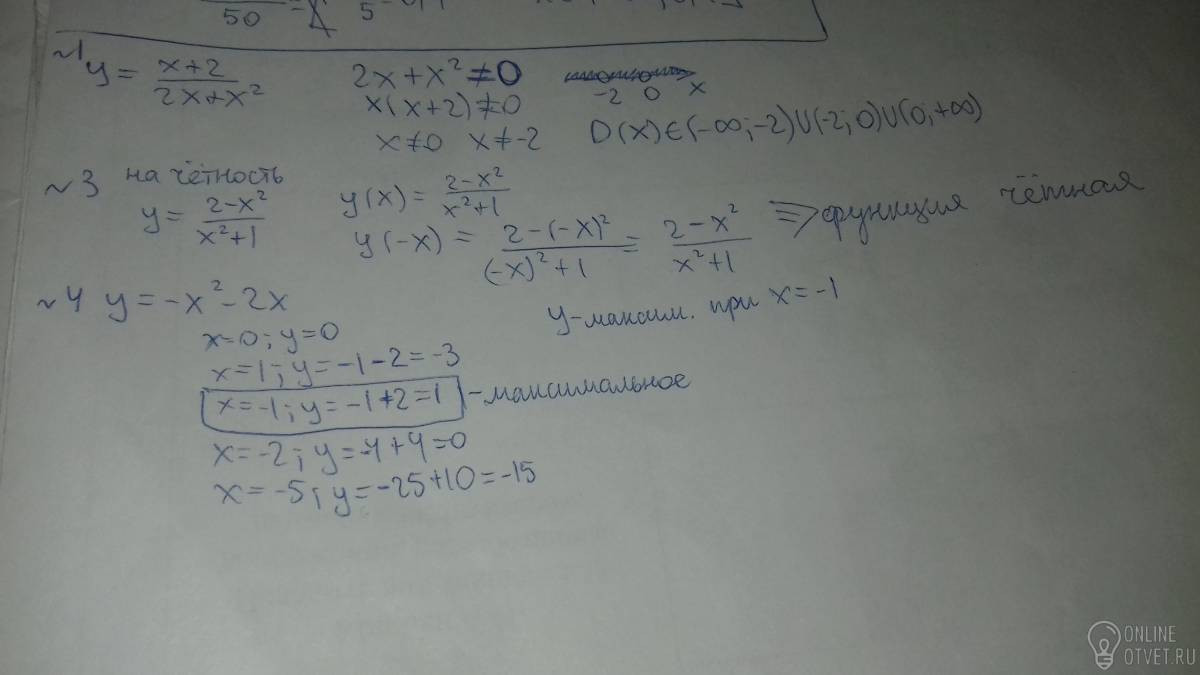 50
~1 y = (x+2)/(2x+x²)
2x+x² ≠ 0
x(x+2) ≠ 0
x≠0 x≠-2
-2 0 x
D(x)∈(-∞;-2)∪(-2;0)∪(0,+∞)
~3 на чётность
y = (2-x²)/(x²+1)
y(x) = (2-x²)/(x²+1)
y(-x) = (2-(-x)²)/((-x)²+1) = (2-x²)/(x²+1) ⇒ функция чётная
~4 y = -x²-2x
x=0; y=0
x=1; y=-1-2=-3
x=-1; y=-1+2=1 - максимальное
x=-2; y=-4+4=0
x=-5; y=-25+10=-15
y-максим. при x=-1
ONLINE
OTVET.RU